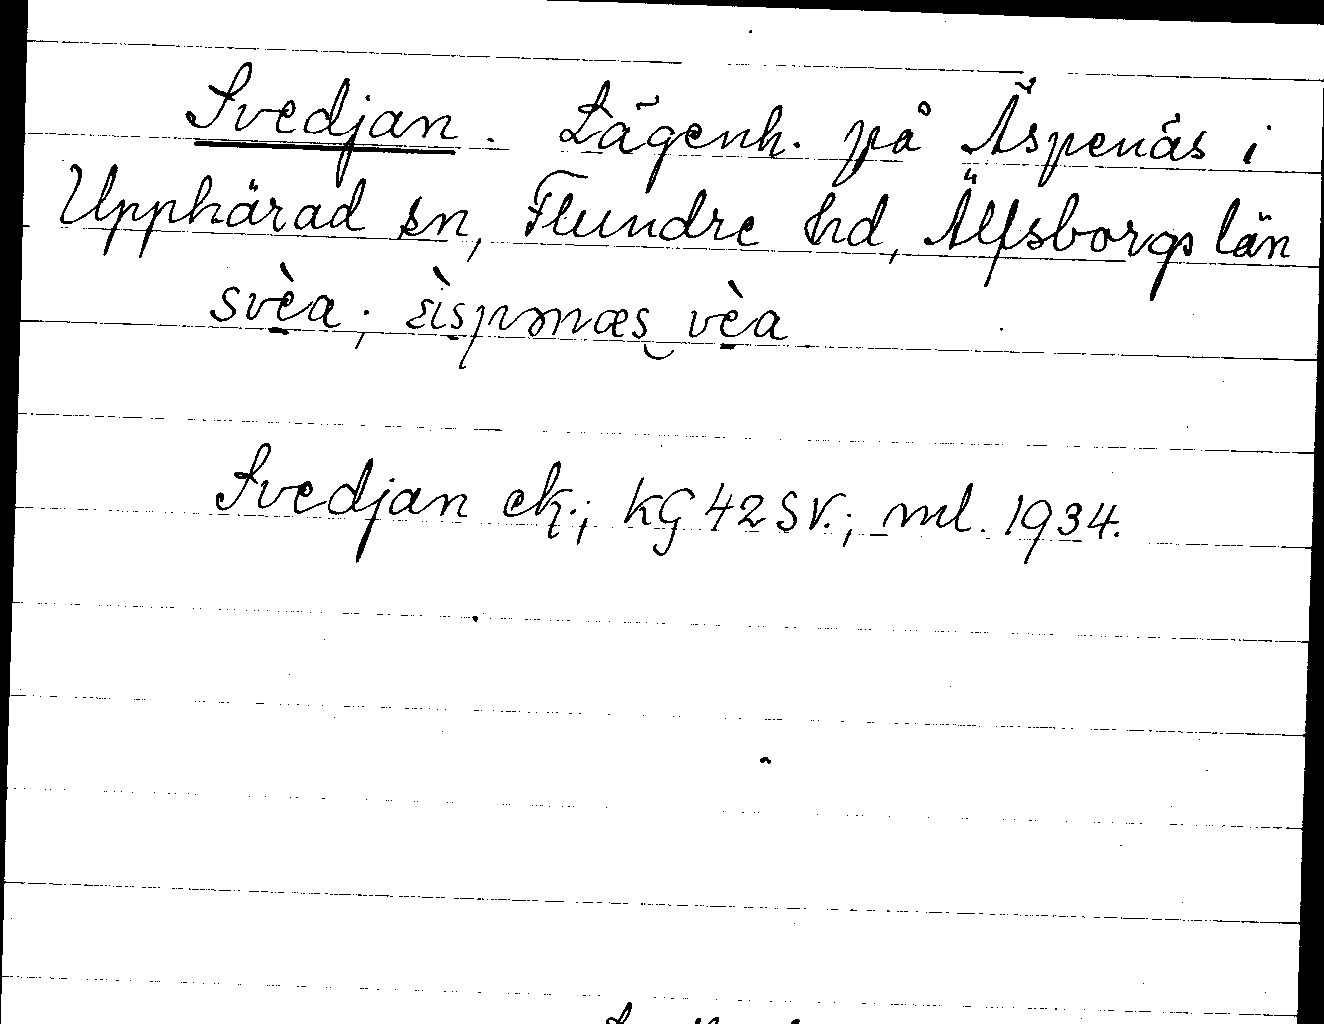 Svedjan. Lägenh. på Äspenäs i
Upphärad sn, Flundre hd, Älfsborgs län
svèa;
Svedjan ek.; KG 42 SV.; ml. 1934.